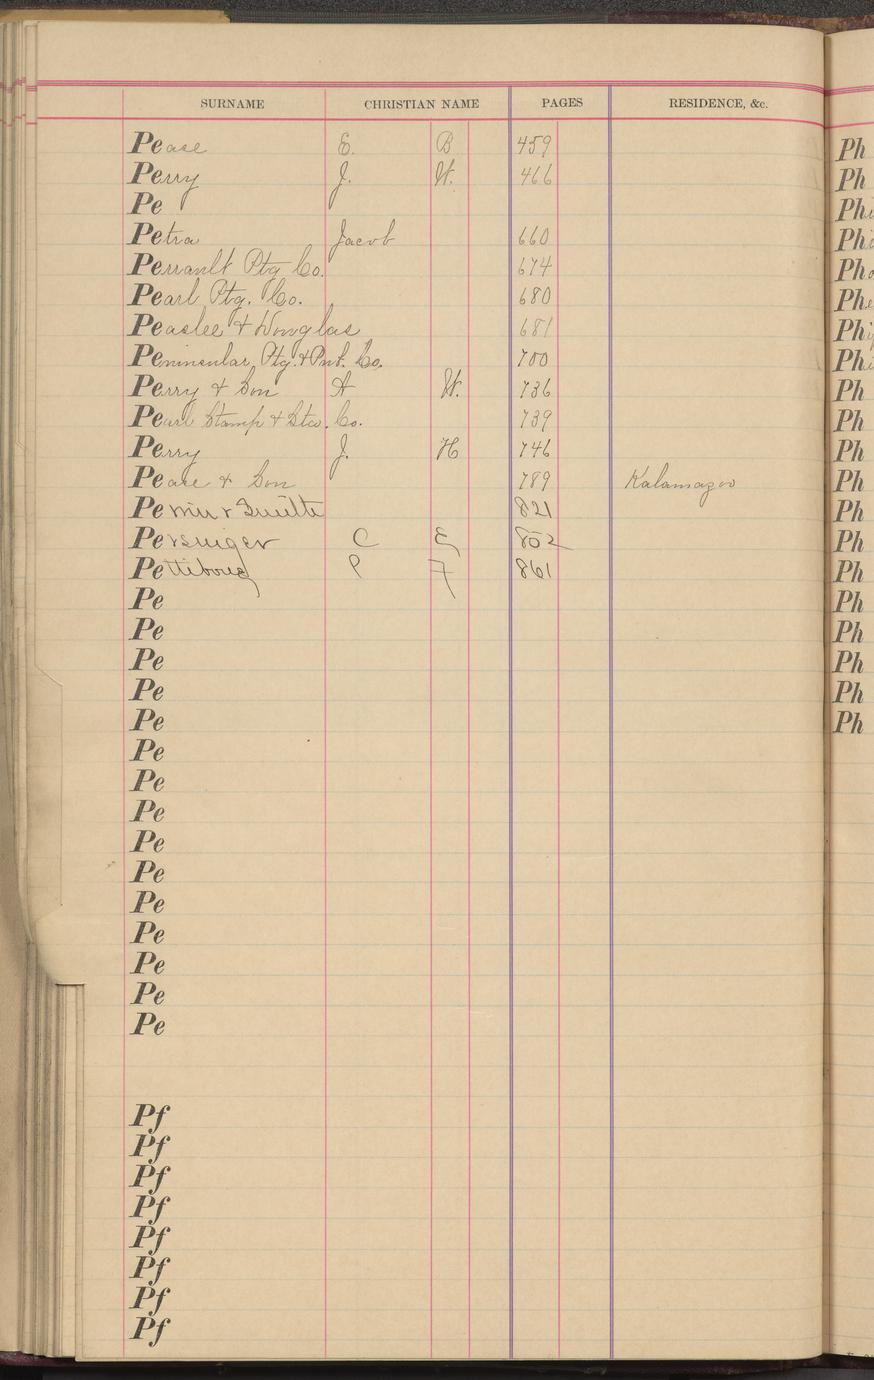 SURNAME CHRISTIAN NAME PAGES RESIDENCE, &c.
Pease E. B 459
Perry J. W. 466
Pe
Petra Jacob 660
Perrault Ptg Co. 674
Pearl Ptg. Co. 680
Peaslee & Douglas 681
Peninsular Ptg. & Pub. Co. 700
Perry & Son A W. 736
Pearl Stamp & Stco. Co. 739
Perry J. H 746
Pease & Son 789 Kalamazoo
Perrin & 821
Persinger C E 852
Pettibone P F 861
Pe
Pe
Pe
Pe
Pe
Pe
Pe
Pe
Pe
Pe
Pe
Pe
Pe
Pe
Pe
Pf
Pf
Pf
Pf
Pf
Pf
Pf
Pf
Ph
Ph
Phi
Phi
Pho
Phe
Phi
Phi
Ph
Ph
Ph
Ph
Ph
Ph
Ph
Ph
Ph
Ph
Ph
Ph